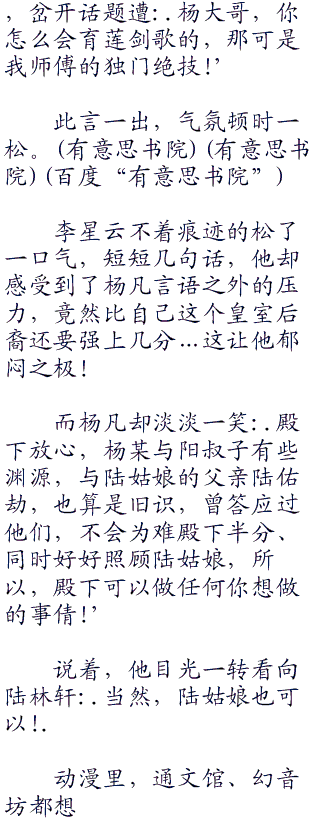 ，岔开话题遭:.杨大哥，你
怎么会育莲剑歌的，那可是
我师傅的独门绝技!’
此言一出，气氛顿时一
松。(有意思书院) (有意思书
院) (百度“有意思书院”)
李星云不着痕迹的松了
一口气，短短几句话，他却
感受到了杨凡言语之外的压
力，竟然比自己这个皇室后
裔还要强上几分…这让他郁
闷之极!
而杨凡却淡淡一笑:.殿
下放心，杨某与阳叔子有些
渊源，与陆姑娘的父亲陆佑
劫，也算是旧识，曾答应过
他们，不会为难殿下半分、
同时好好照顾陆姑娘，所
以，殿下可以做任何你想做
的事倩!’
说着，他目光一转看向
陆林轩:.当然，陆姑娘也可
以!.
动漫里，通文馆、幻音
坊都想